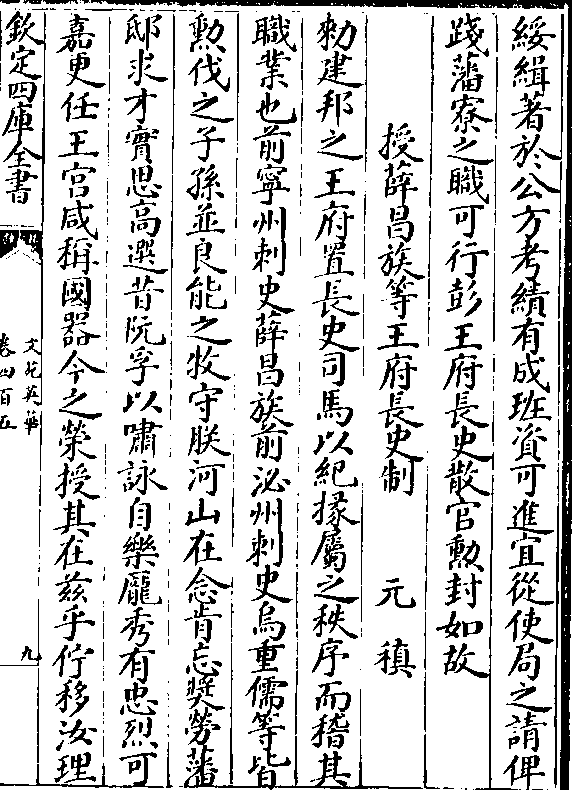 綏緝著於公方考績有成班資可進宜從使局之請俾
踐藩寮之職可行彭王府長史散官勲封如故
授薛昌族等王府長史制 元稹
勑建邦之王府置長史司馬以紀掾屬之秩序而稽其
職業也前寧州刺史薛昌族前泌州刺史烏重儒等皆
勲伐之子孫並良能之牧守朕河山在念肯忘奬勞藩
邸求才實思高選昔阮孚以嘯詠自樂龎秀有忠烈可
嘉更任王宫咸稱國器今之榮授其在兹乎佇移汝理
欽定四庫全書
文苑英華
卷四百五
九